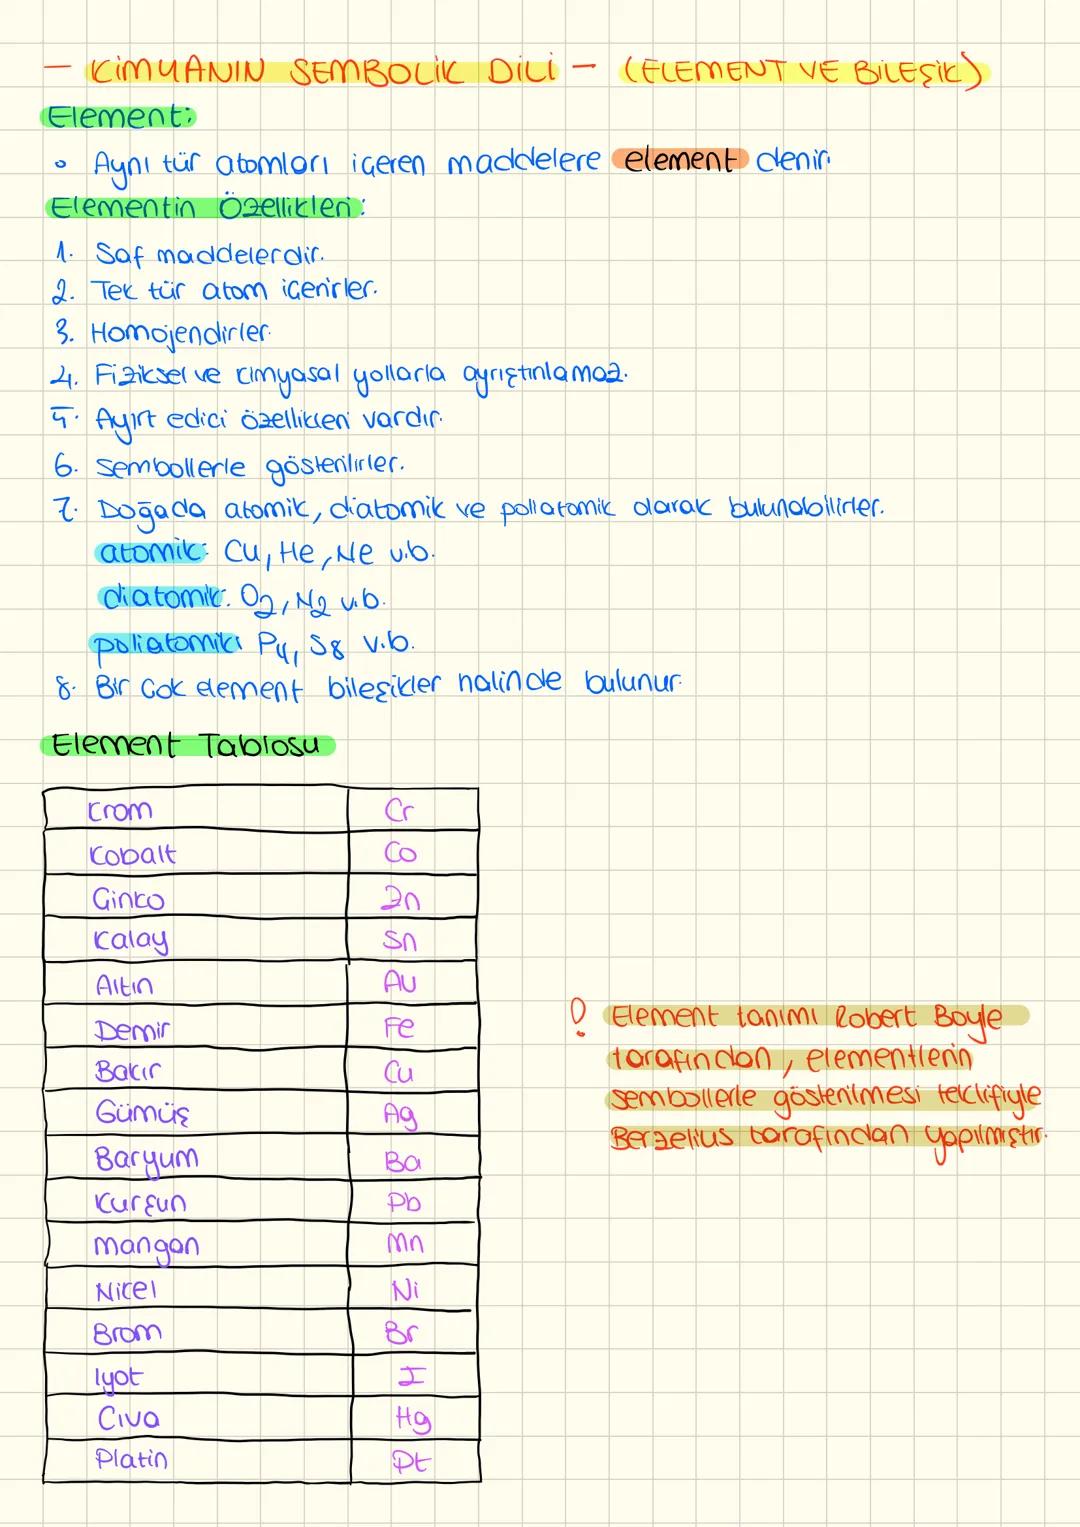 - KİMYANIN SEMBOLİK DİLİ - (ELEMENT VE BİLEŞİK)
Element:
• Aynı tür atomları içeren maddelere element denir.
Elementin Özellikleri:
1. Saf maddelerdir.
2. Tek tür atom içerirler.
3. Homojendirler.
4. Fiziksel ve kimyasal yollarla ayrıştırılamaz.
5. Ayırt edici özellikleri vardır.
6. Sembollerle gösterilirler.
7. Doğada atomik, diatomik ve poliatomik olarak bulunabilirler.
atomik: Cu, He, Ne v.b.
diatomik: O2, N2 v.b.
poliatomik: P4, S8 v.b.
8. Bir çok element bileşikler halinde bulunur.
Element Tablosu
Krom Cr
Kobalt Co
Çinko Zn
Kalay Sn
Altın Au
Demir Fe
Bakır Cu
Gümüş Ag
Baryum Ba
Kurşun Pb
Mangan Mn
Nikel Ni
Brom Br
Iyot I
Cıva Hg
Platin Pt
! Element tanımı Robert Boyle
tarafından, elementlerin
sembollerle gösterilmesi teklifiyle
Berzelius tarafından yapılmıştır.